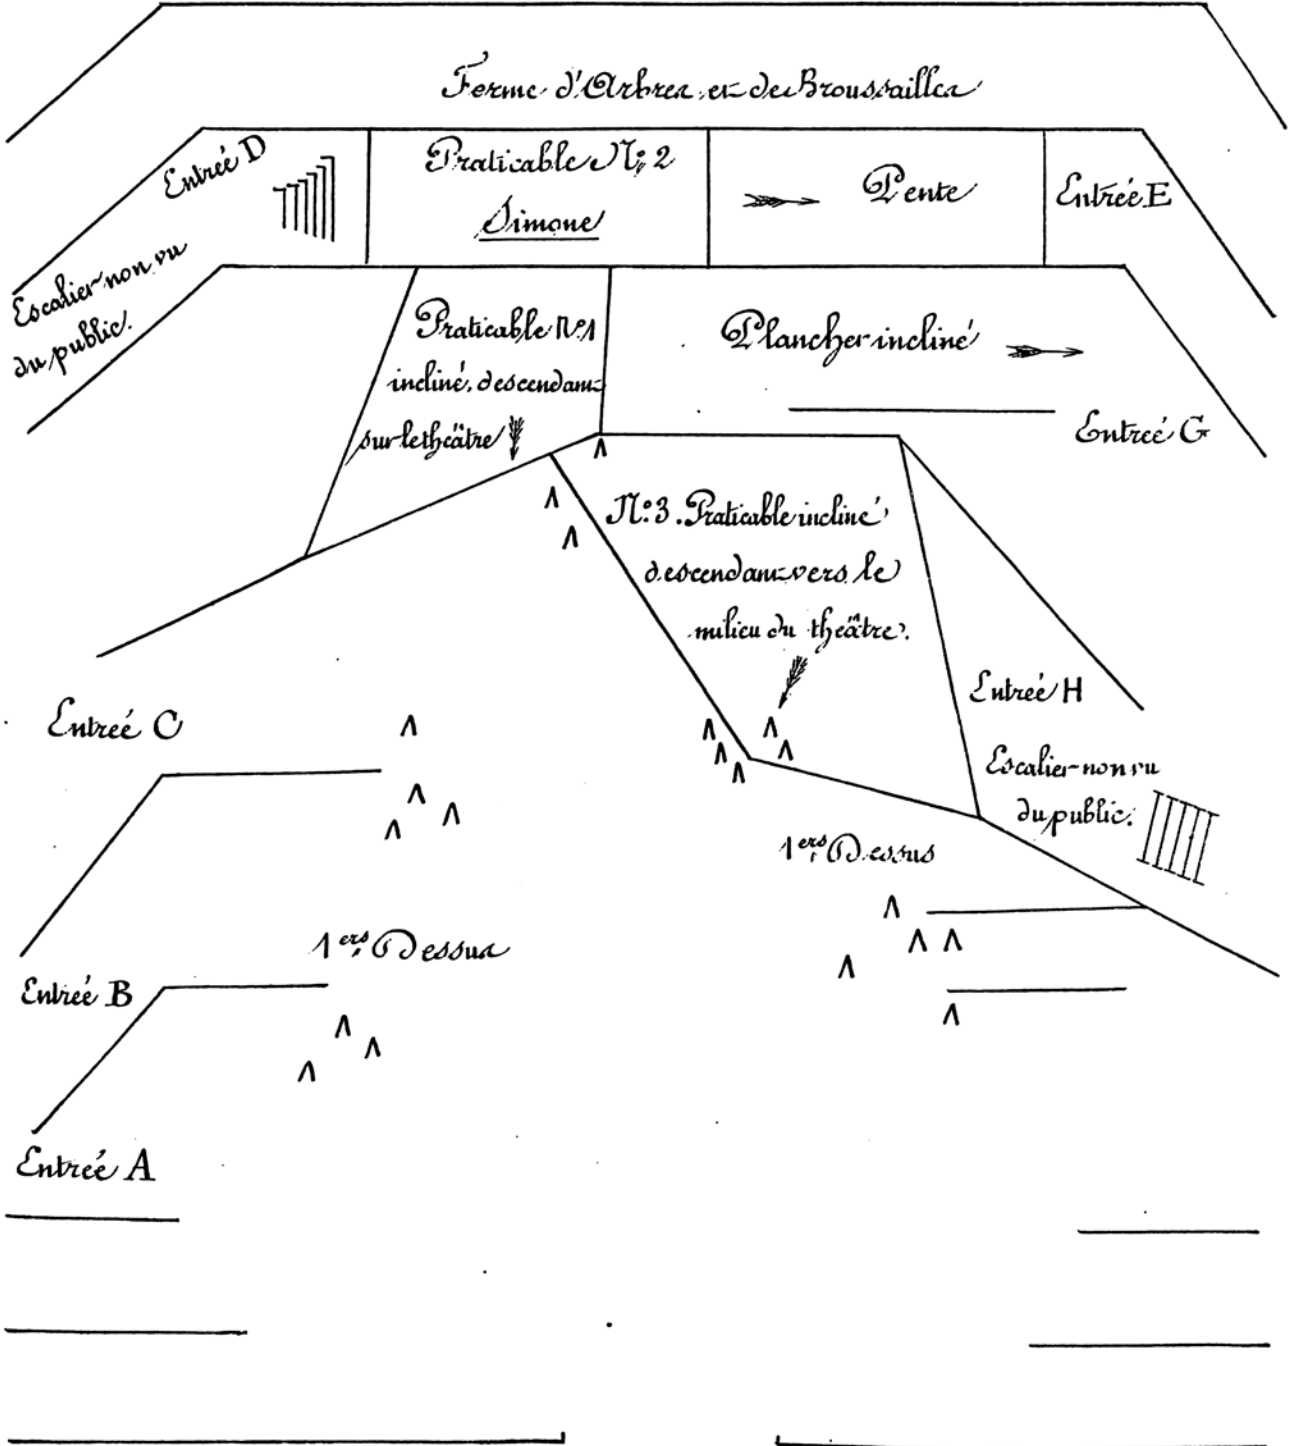 Ferme d'Arbres et de Broussailles
Entrée D
Praticable N° 2
Simone
Pente
Entrée E
Escalier non vu
du public.
Praticable N° 1
incliné, descendant
sur le théâtre
Plancher incliné
Entrée G
N° 3. Praticable incliné
descendant vers le
milieu du théâtre.
Entrée H
Escalier non vu
du public.
Entrée C
1ers Dessus
1ers Dessus
Entrée B
Entrée A